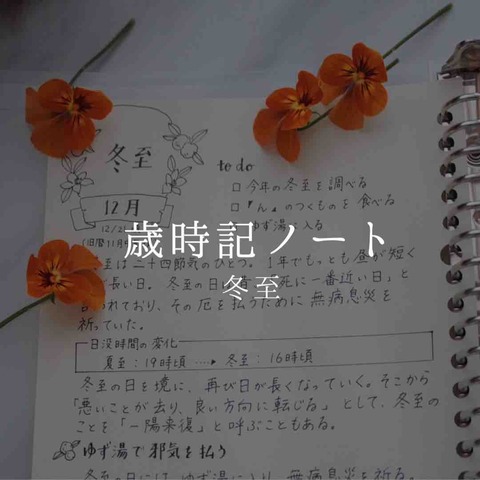 歳時記ノート
冬至
冬至
12月
12/2
(旧暦11月
to do
□ 今年の冬至を調べる
□ 『ん』のつくものを食べる
ゆず湯に入る
至は二十四節気のひとつ。1年でもっとも昼が短く
長い日。冬至の日は 死に一番近い日」と
われており、その厄を払うために無病息災を
祈っていた。
日没時間の変化
夏至:19時頃 ....→ 冬至:16時頃
冬至の日を境に、再び日が長くなっていく。そこから
「悪いことが去り、良い方向に転じる」として、冬至の
ことを「一陽来復」と呼ぶこともある。
ゆず湯で邪気を払う
冬至の日には、ゆず湯に入り、無病息災を祈る。